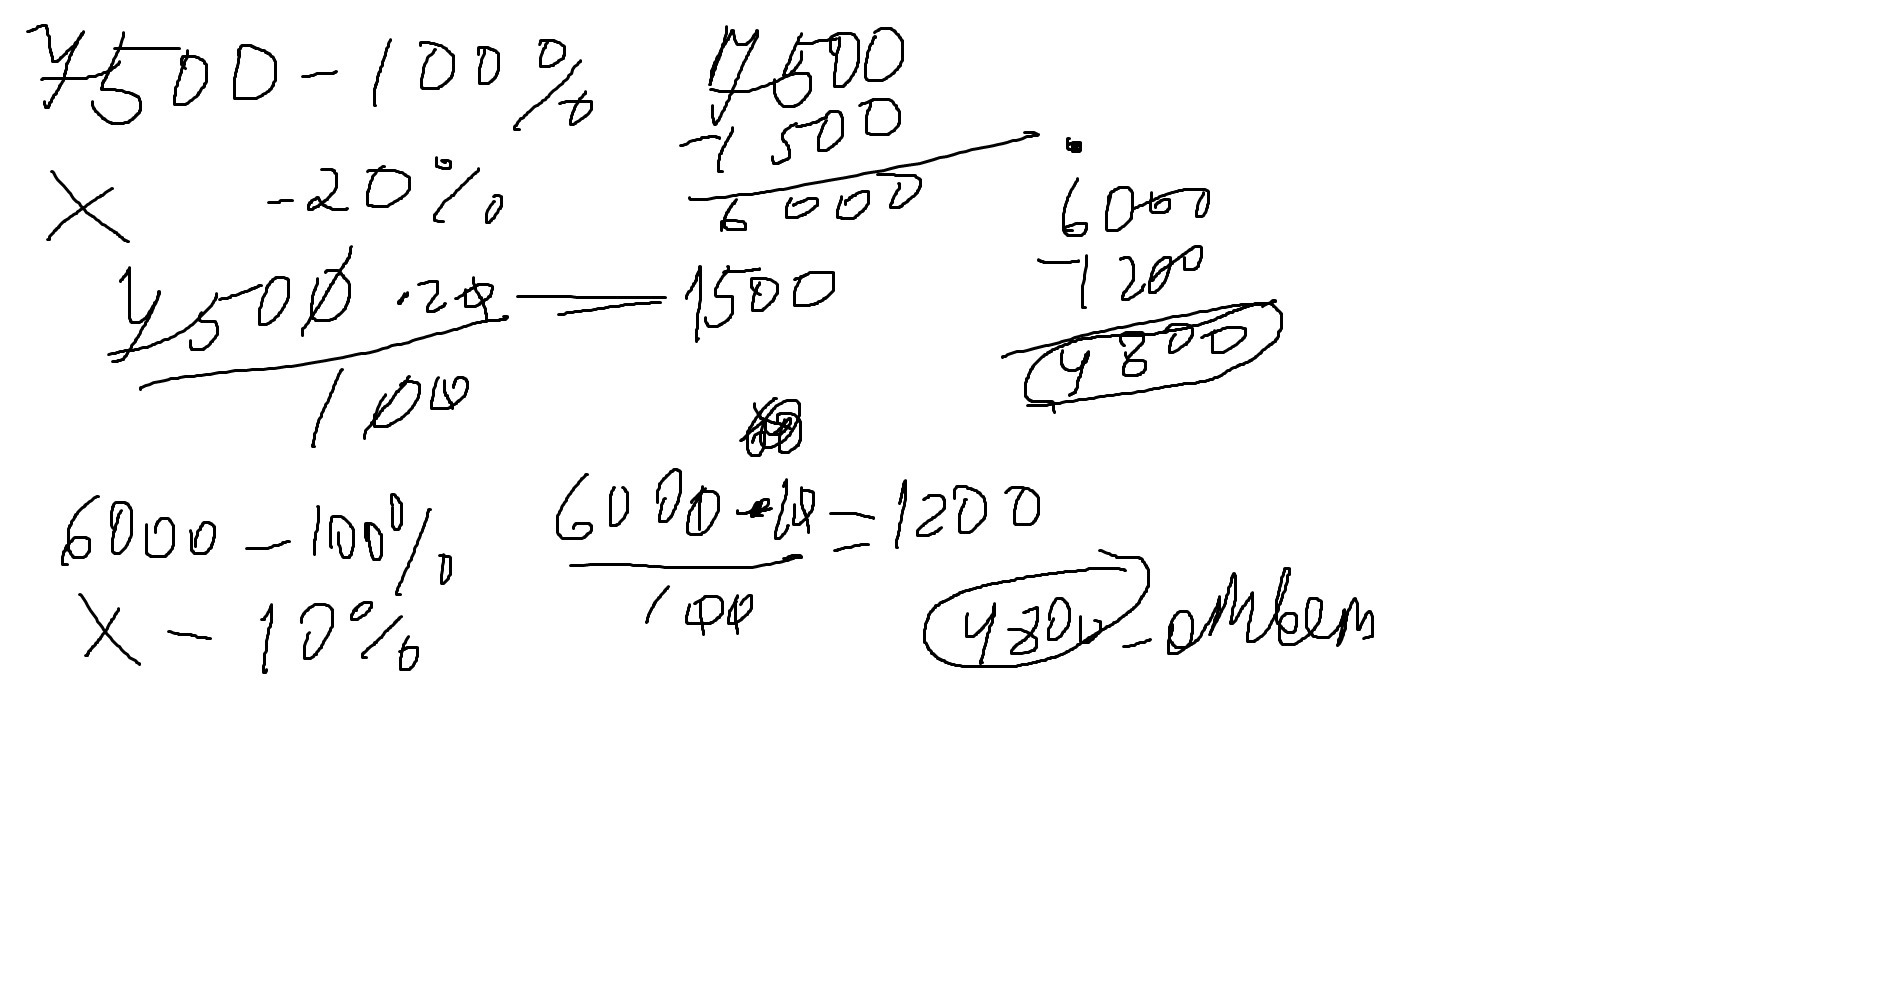 7500 - 100%
x - 20%
7500 · 20 / 100 = 1500
7500
-1500
6000
6000
-1200
4800
6000 - 100%
x - 10%
6000 · 10 / 100 = 1200
4800 - ответ